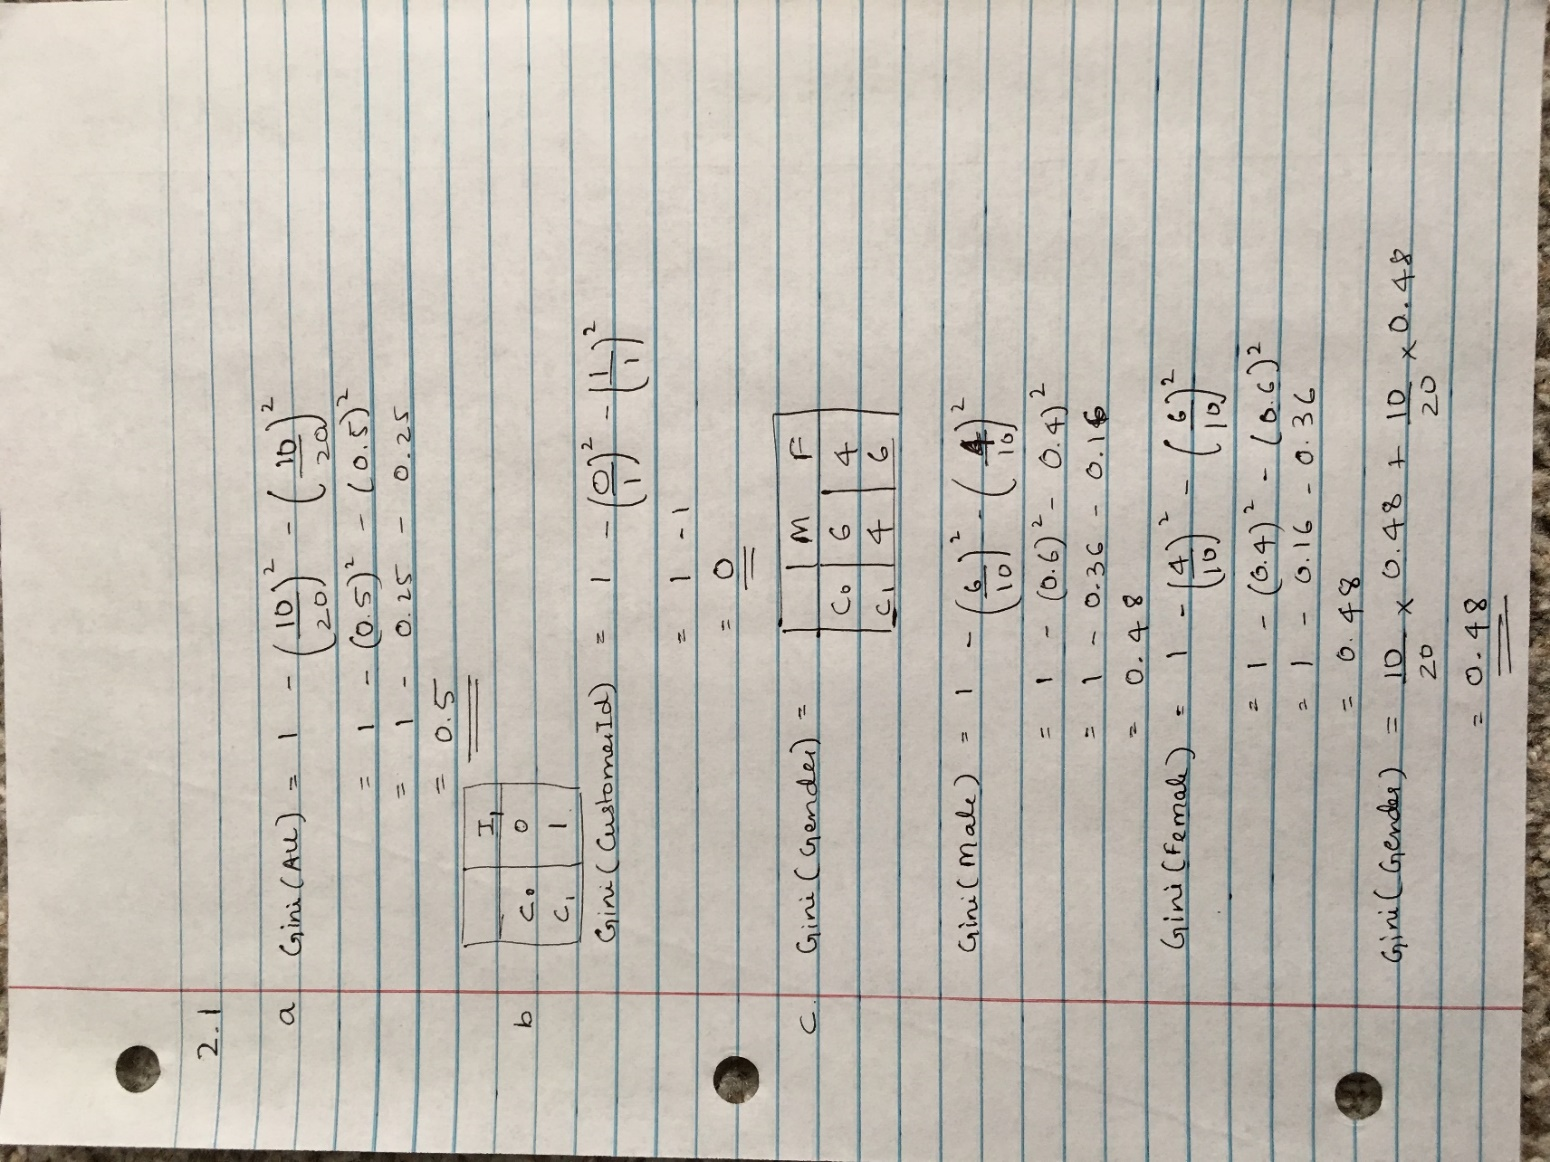 2.1
a Gini(All) = 1 - (10/20)² - (10/20)²
= 1 - (0.5)² - (0.5)²
= 1 - 0.25 - 0.25
= 0.5
b
I₁
C₀ 0
C₁ 1
Gini(CustomerId) = 1 - (0/1)² - (1/1)²
= 1 - 1
= 0
c. Gini(Gender) =
M F
C₀ 6 4
C₁ 4 6
Gini(Male) = 1 - (6/10)² - (4/10)²
= 1 - (0.6)² - 0.4)²
= 1 - 0.36 - 0.16
= 0.48
Gini(Female) = 1 - (4/10)² - (6/10)²
= 1 - (0.4)² - (0.6)²
= 1 - 0.16 - 0.36
= 0.48
Gini(Gender) = 10/20 x 0.48 + 10/20 x 0.48
= 0.48